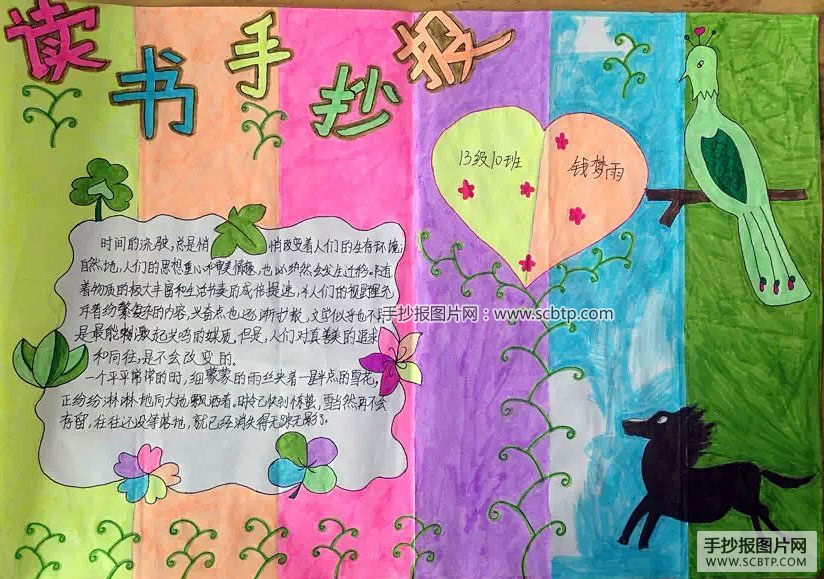 读书手抄报
13级10班
钱梦雨
时间的流驶,总是悄悄改变着人们的生存环境;
自然地,人们的思想重心和审美情趣,也必然会发生迁移.随
着物质的极大丰富和生活节奏的成倍提速,
着纷繁复杂的内容,兴奋点也逐渐扩散,文学似乎也不
是最能刺激起兴奋的媒质,但是,人们对真善美的追求
和向往,是不会改变的.
一个平平常常的时,细蒙蒙的雨丝夹着一星半点的雪花,
正纷纷淋淋地向大地飘洒着。时令已快到惊蛰,雪当然再不会
存留,往往还没等落地,就已经消失得无踪无影了.
手抄报图片网:www.scbtp.com
手抄报图片网
WWW.SCBTP.COM